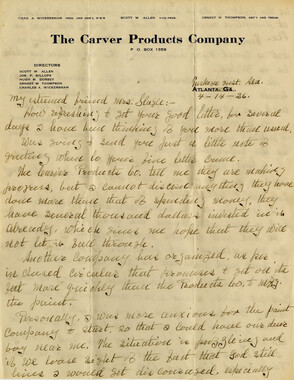 CHAS. A. WICKERSHAM
SCOTT W. ALLEN
ERNEST W. THOMPSON
The Carver Products Company
P. O. BOX 1358
DIRECTORS
SCOTT W. ALLEN
HUGH M. DORSEY
ERNEST W. THOMPSON
CHARLES A. WICKERSHAM
Tuskegee Inst. Ala.
ATLANTA, GA.
4-14-26.
My esteemed friend Mrs.
How refreshing to get your good letter, for several
days I have been thinking of you more than usual.
Was going to send you just a little note of
greeting when lo your fine letter came.
The Carver Products Co. tell me they are making
progress, but I cannot discern anything they have
done more than that of spending money, they
have several thousand dollars invested in it
already, which gives me hope that they will
not let it fall through.
Another Company has organized, as per
inclosed circular that promises to get on its
feet more quickly than the Products Co. to
the paint.
Personally, I was more anxious for the paint
Company to start, so that I could have our dear
boy near me. The situation is puzzling and
if we lose sight of the fact that God still
lives I would get discouraged, especially